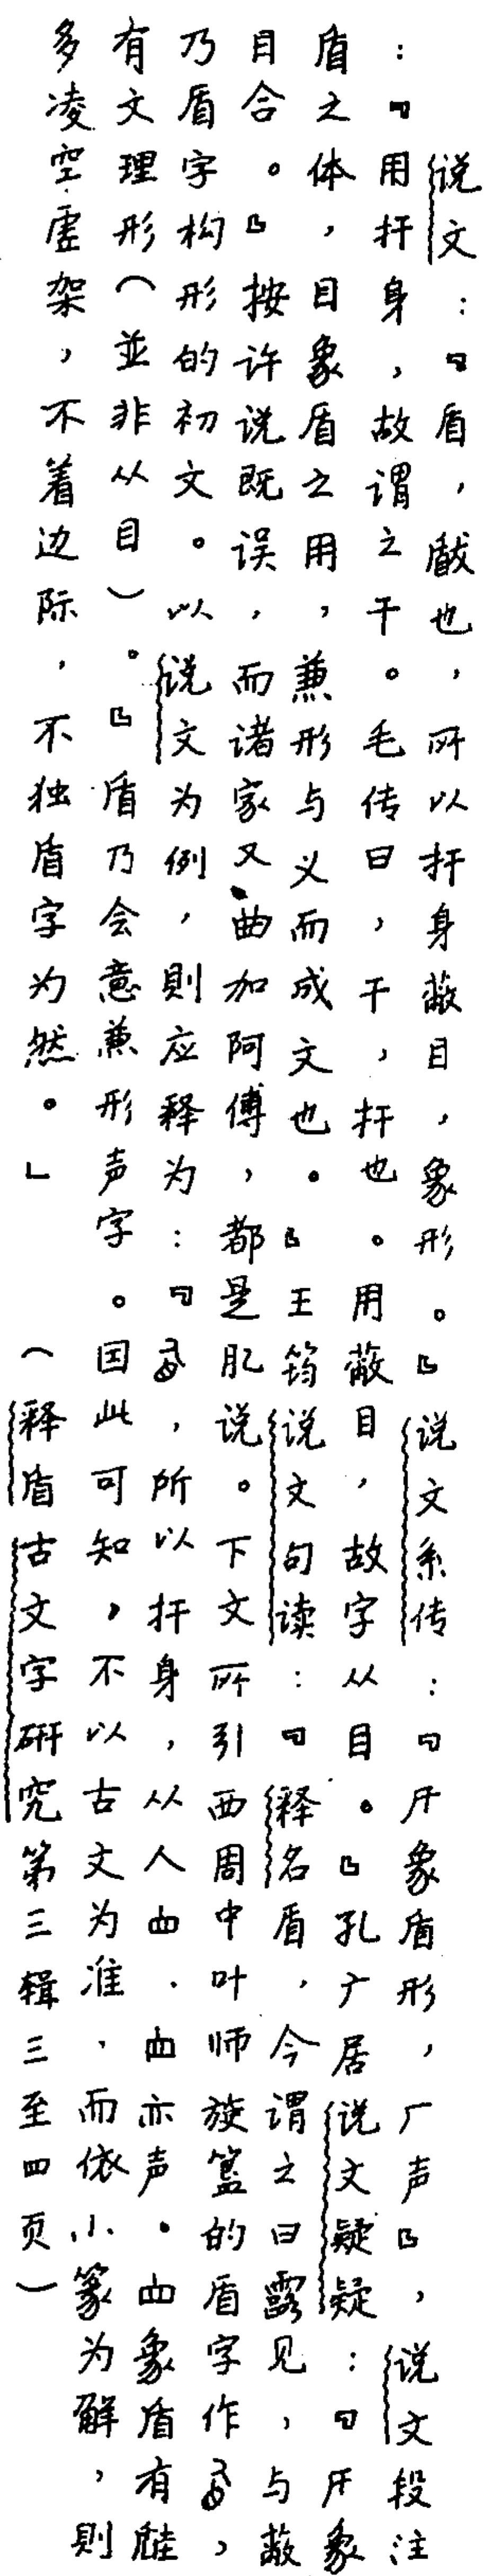 说文：『盾，瞂也，所以扞身蔽目，象形。』说文系传：『𠂆象盾形，厂声』，说文段注
：『用扞身，故谓之干。毛传曰，干，扞也。用蔽目，故字从目。』孔广居说文疑疑：『𠂆象
盾之体，目象盾之用，兼形与义而成文也。』王筠说文句读：『释名盾，今谓之曰露见，与蔽
目合。』按许说既误，而诸家又曲加阿傅，都是肊说。下文所引西周中叶师旋簋的盾字作，
乃盾字构形的初文。以说文为例，則应释为：『，所以扞身，从人，亦声。象盾有觟
有文理形（並非从目）。』盾乃会意兼形声字。因此可知，不以古文为准，而依小篆为解，則
多凌空虚架，不着边际，不独盾字为然。」（释盾古文字研究第三辑三至四页）